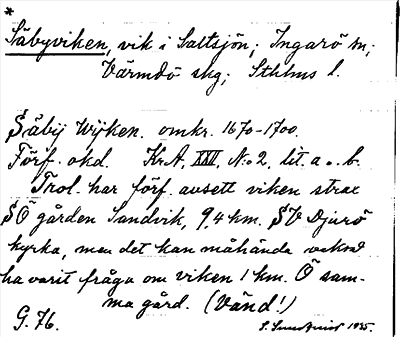 *
Säbyviken, vik i Saltsjön; Ingarö sn;
Värmdö skg; Sthlms l.
Säbij Wijken. omkr. 1670-1700.
Förf. okd. Kr.A. XXVI, No 2, lit. a.. b.
Trol. har förf. avsett viken strax
SÖ gården Sandvik, 9,4 km. SV Djurö
kyrka, men det kan måhända också
ha varit fråga om viken 1 km. Ö sam-
ma gård. (Vänd!)
G. 76. 1935.